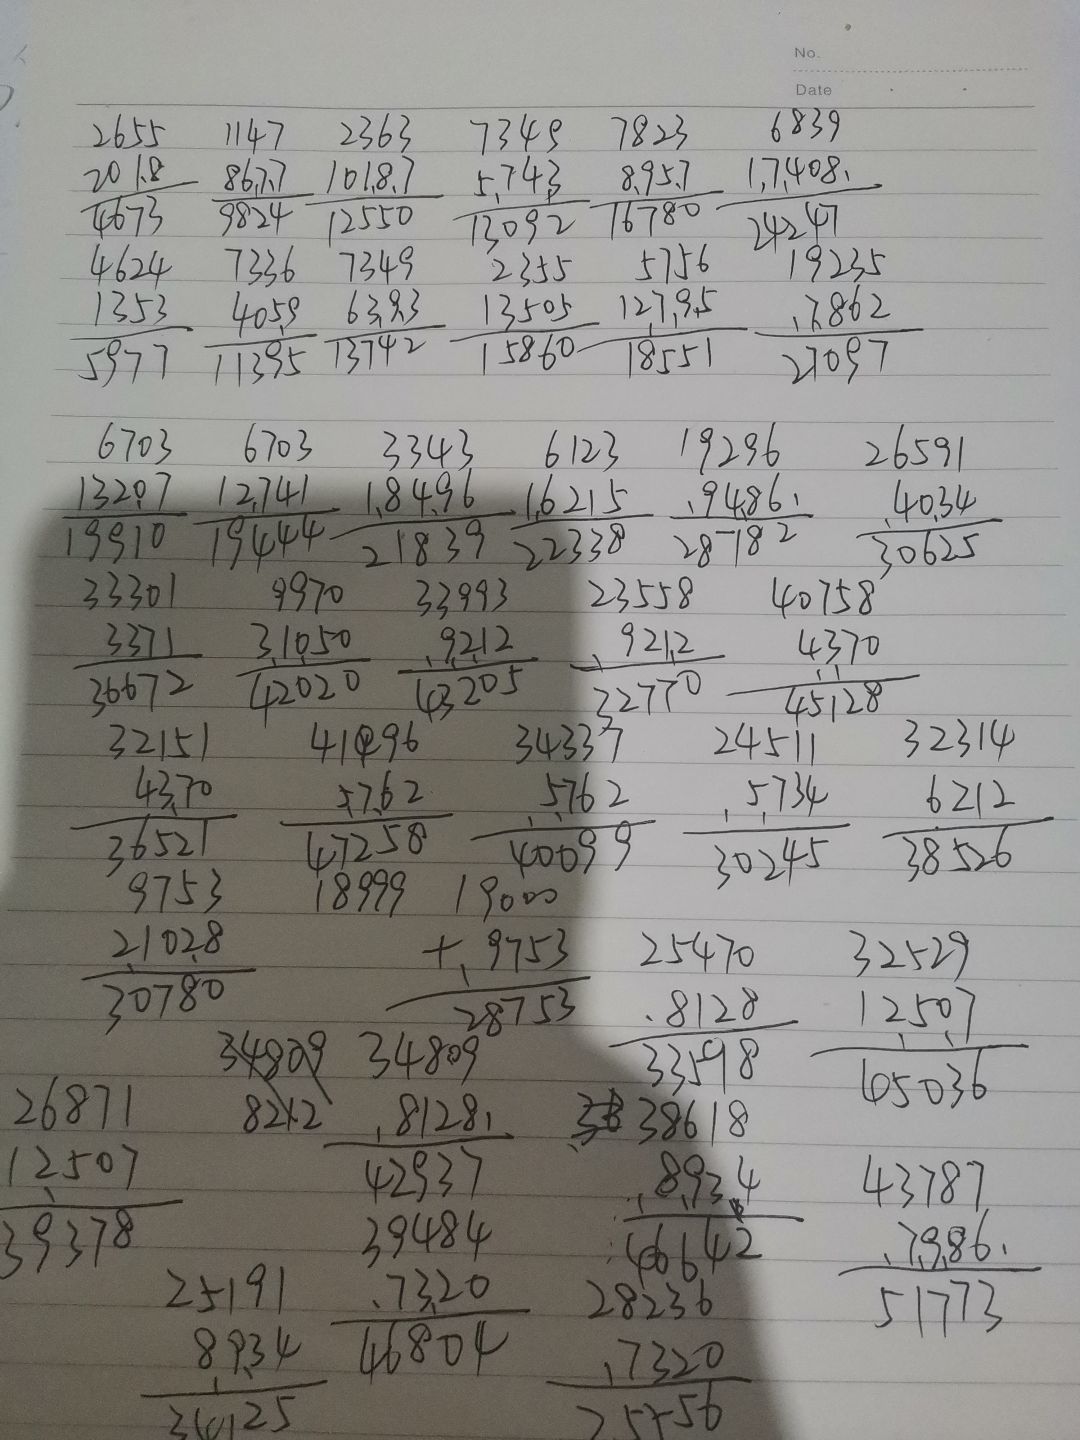 No.
Date
2655 1147 2363 7349 7823 6839
2018 8677 10187 5743 8957 17408
4673 9824 12550 13092 16780 24247
4624 7336 7349 2355 5756 19235
1353 4059 6393 13505 12795 7862
5977 11395 13742 15860 18551 27097
6703 6703 3343 6123 19296 26591
13207 12741 18496 16215 9486 4034
19910 19444 21839 22338 28782 30625
33301 9970 33993 23558 40758
3371 31050 9212 9212 4370
36672 42020 43205 32770 45128
32151 41496 34337 24511 32314
4370 5762 5762 5734 6212
36521 47258 40099 30245 38526
9753 18999 19000
21028 + 9753 25470 32529
30780 28753 8128 12507
34809 34809 33598 45036
26871 8212 8128 38618
12507 42937 8934 43787
39378 39484 46642 7986
25191 7320 28236 51773
8934 46804 7320
34125